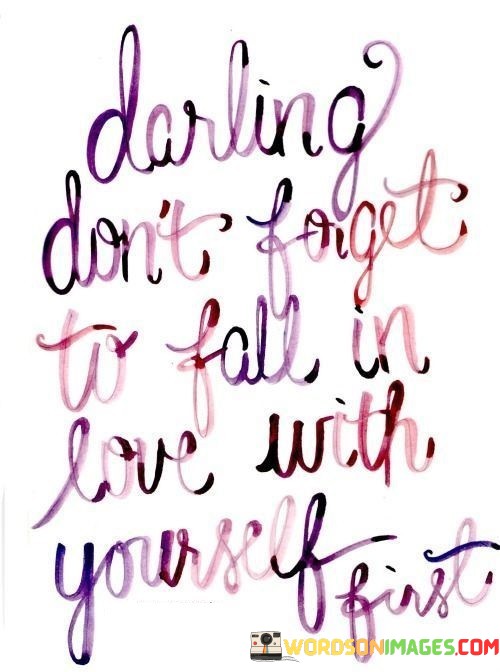 darling
don't forget
to fall in
love with
yourself first
WORDSONIMAGES.COM